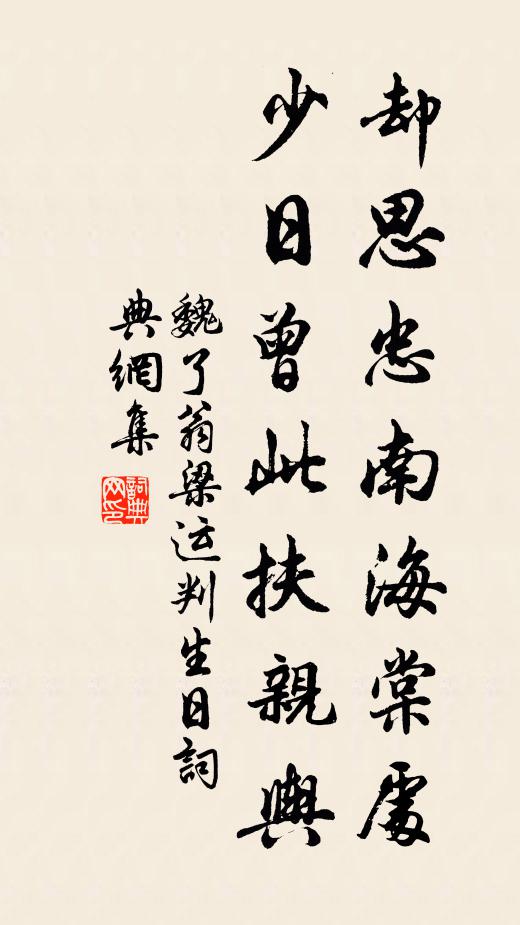 却思忠南海棠處
少日曾此扶親輿
魏了翁梁运判生日詞
典網集
詞典网印